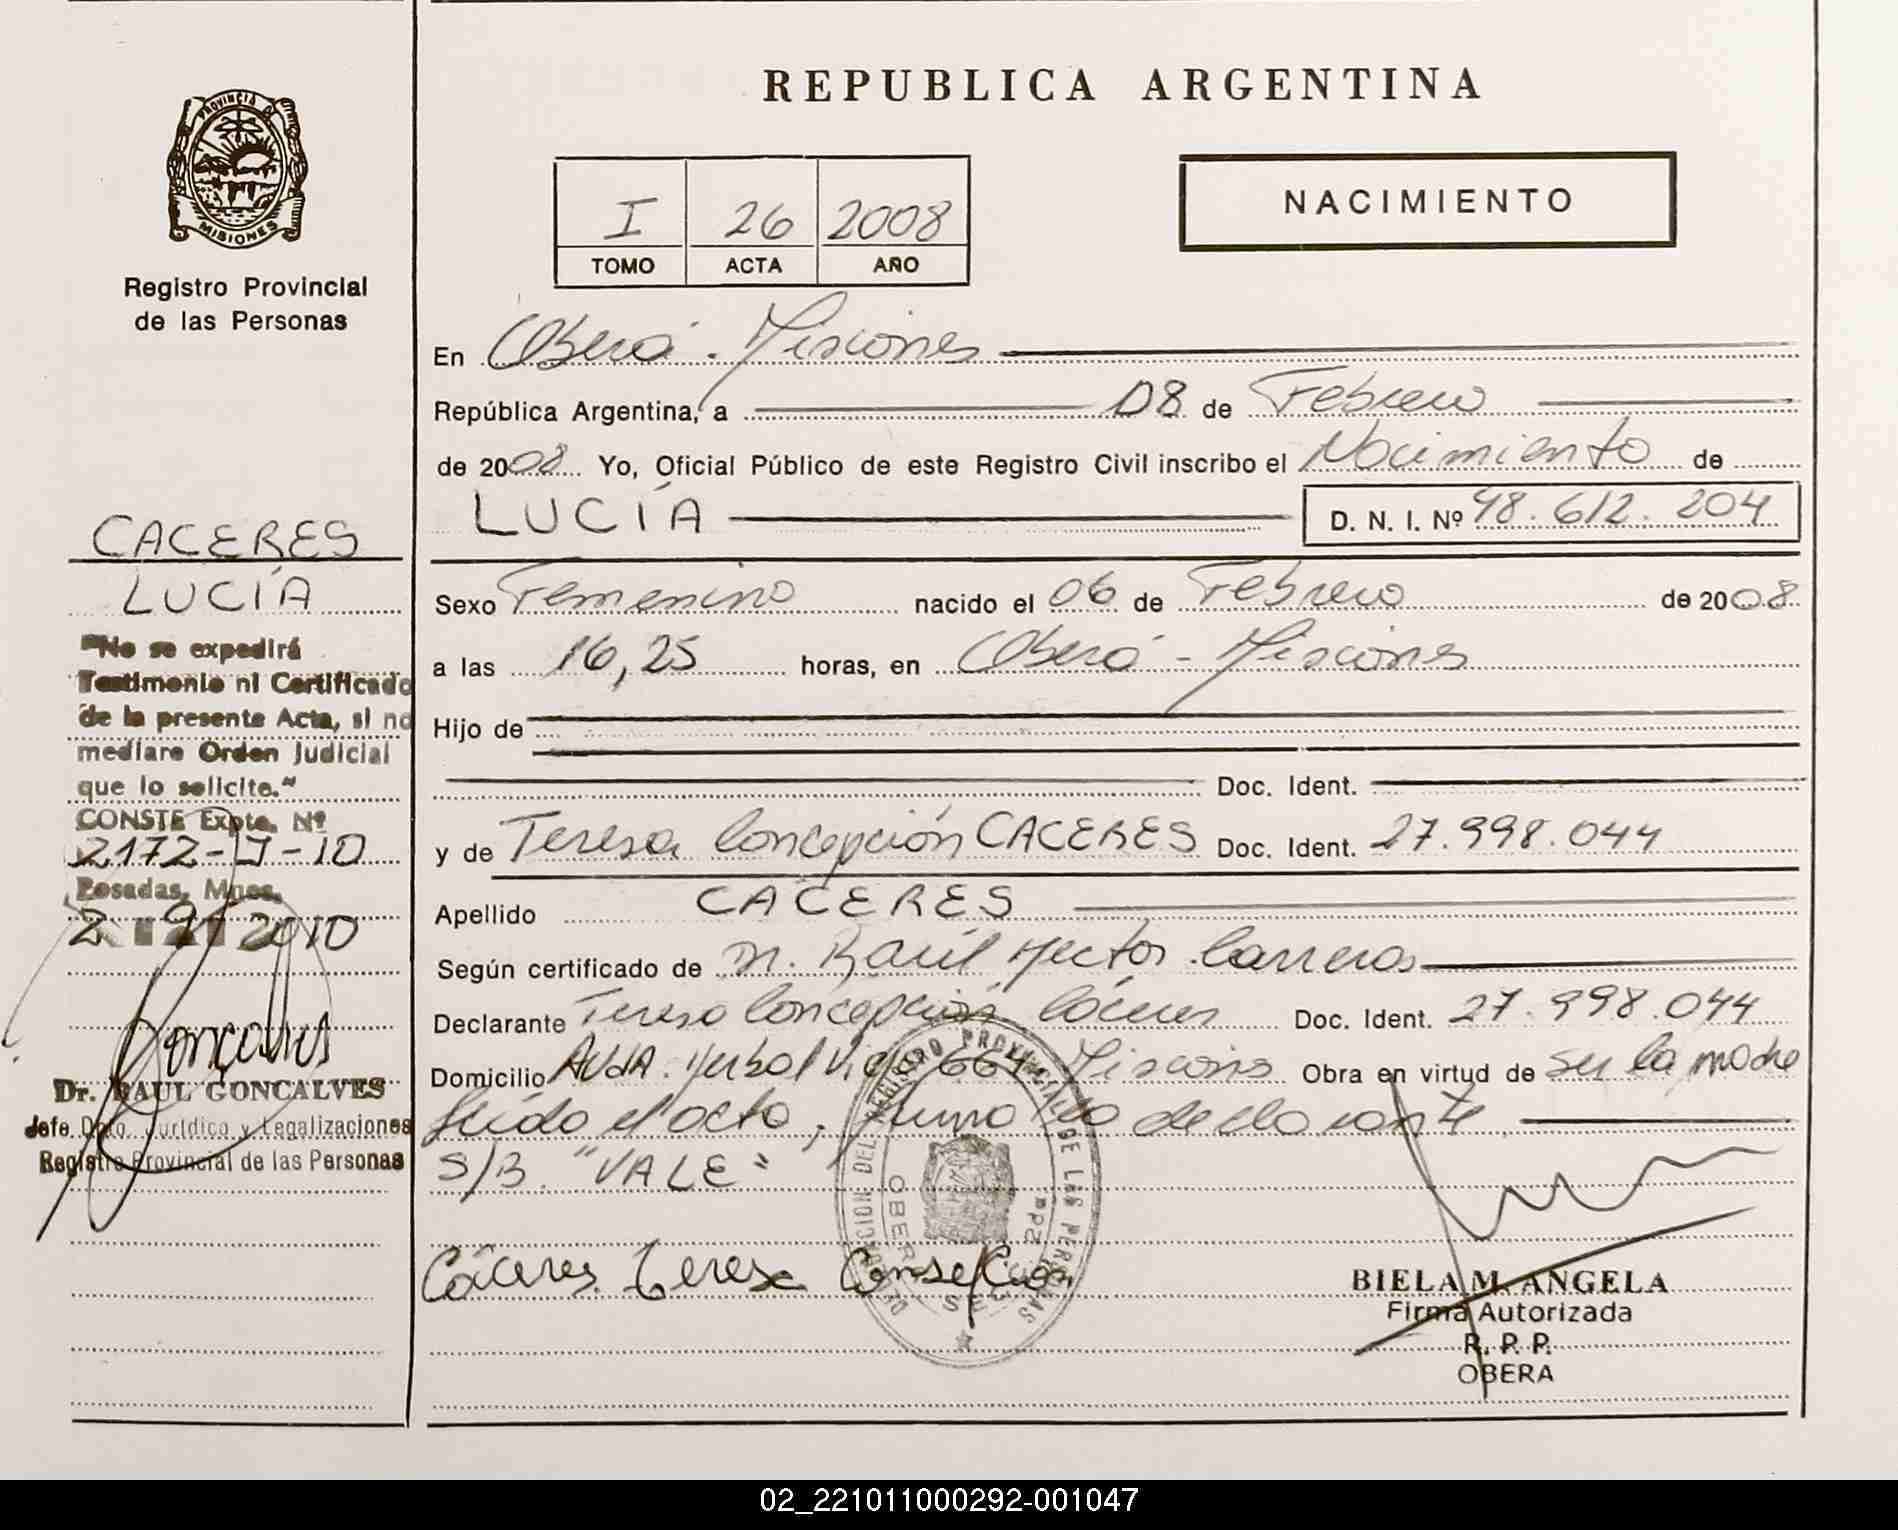 REPUBLICA ARGENTINA
PROVINCIA D
MISIONES
Registro Provincial
de las Personas
I 26 2008
TOMO ACTA AÑO
NACIMIENTO
En Oberá - Misiones
República Argentina, a 08 de Febrero
de 2008 Yo, Oficial Público de este Registro Civil inscribo el Nacimiento de
LUCÍA D. N. I. Nº 48.612.204
Sexo Femenino nacido el 06 de Febrero de 2008
a las 16,25 horas, en Oberá - Misiones
Hijo de
Doc. Ident.
y de Teresa Concepción CACERES Doc. Ident. 27.998.044
Apellido CACERES
Según certificado de m. Raúl Hector Carreras
Declarante Teresa Concepción Cáceres Doc. Ident. 27.998.044
Domicilio Avda. Yerbal Viejo 664 Misiones Obra en virtud de ser la madre
leído el acta, firma la declarante
S/B. "VALE"
Cáceres Teresa Consepcion
BIELA M. ANGELA
Firma Autorizada
R. P. P.
OBERA
DELEGACION DEL REGISTRO PROVINCIAL DE LAS PERSONAS
CACERES
LUCÍA
"No se expedirá
Testimonio ni Certificado
de la presente Acta, si no
mediare Orden Judicial
que lo solicite."
CONSTE Expte. Nº
2172-J-10
Posadas, Mnes.
2 2010
Gonçalves
Dr. RAUL GONCALVES
Jefe Dpto. Jurídico y Legalizaciones
Registro Provincial de las Personas
02_221011000292-001047